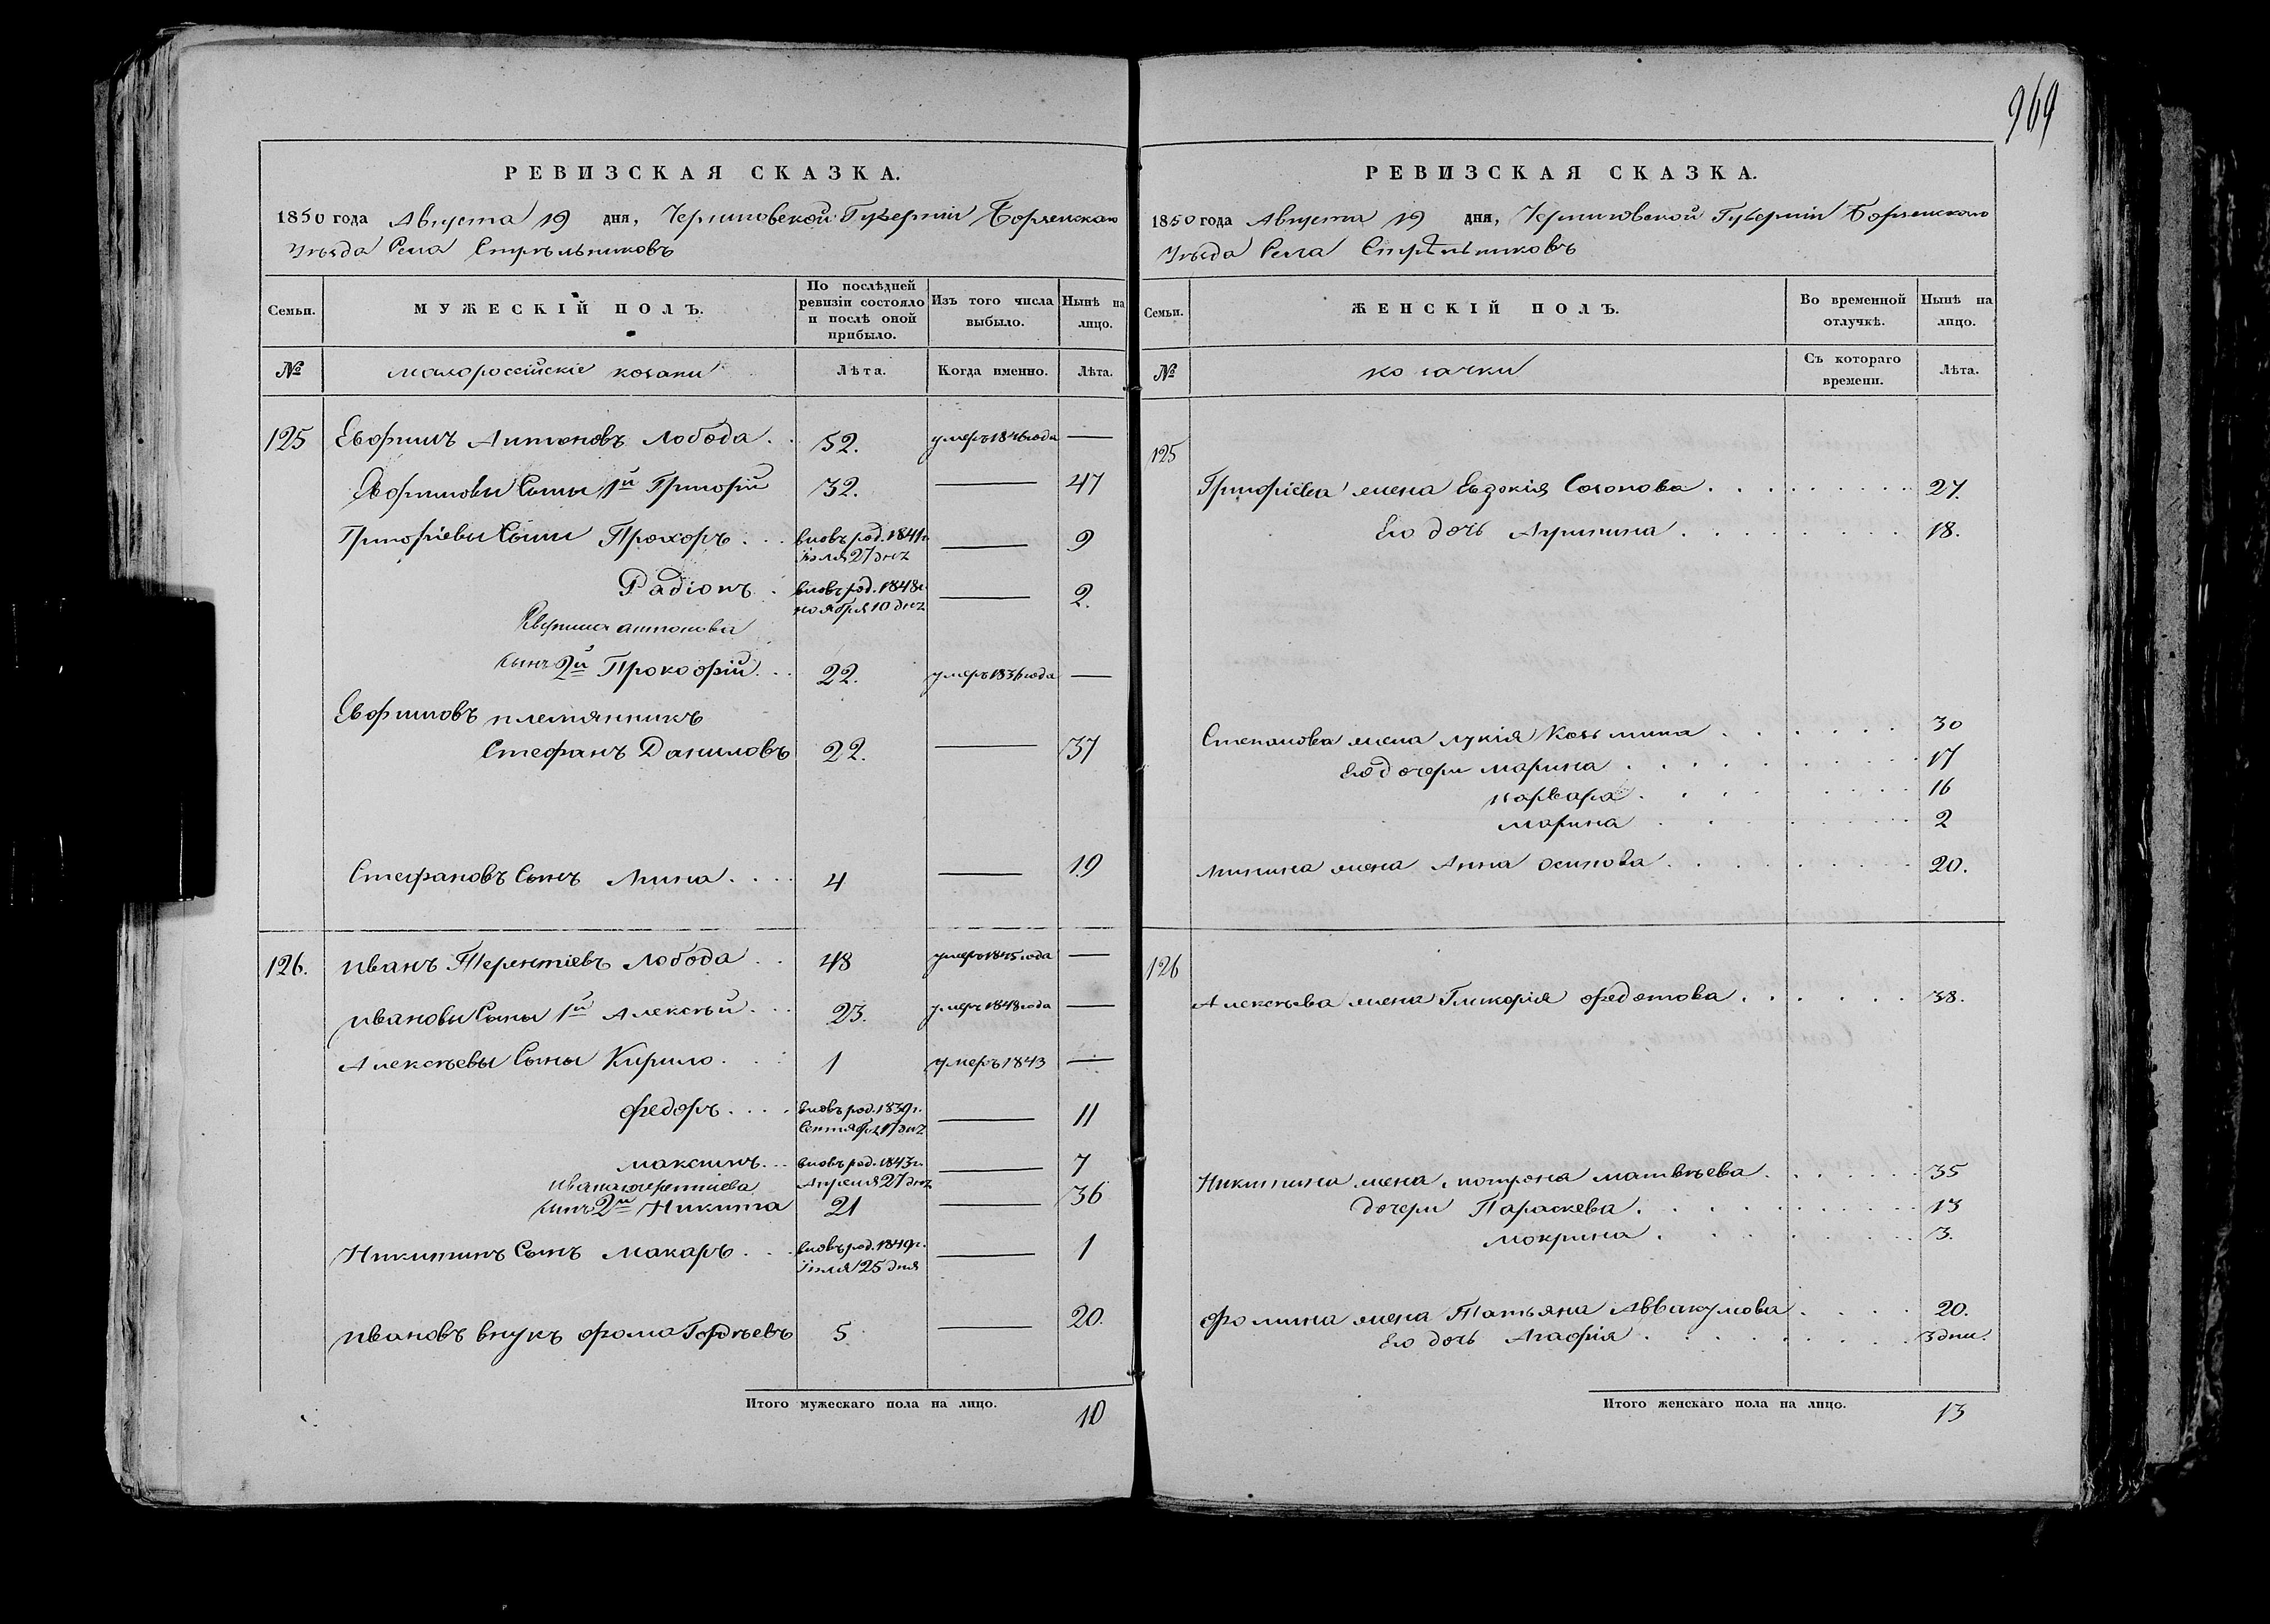 969
РЕВИЗСКАЯ СКАЗКА.
1850 года Августа 19 дня, Черниговской Губерніи Борзенскаго
Уѣзда Села Стрѣльниковъ
Семьи. МУЖЕСКІЙ ПОЛЪ. По послѣдней ревизіи состояло и послѣ оной прибыло. Изъ того числа выбыло. Нынѣ на лицо.
№ малороссійскіе козаки Лѣта. Когда именно. Лѣта.
125 Евфимъ Антоновъ Лобода 52. умеръ 1846 года —
Евфимовы Сыны 1й Григорій 32. — 47
Григоріевы Сыны Прохоръ вновь род. 1841 г. — 9
іюля 27 дня
Радіонъ вновь род. 1848 г. — 2.
ноября 10 дня
Евфима антонова
сынъ 2й Прокофій 22. умеръ 1836 года —
Евфимовъ племянникъ
Стефанъ Даниловъ 22. — 37
Стефановъ Сынъ Мина 4 — 19
126. Иванъ Терентіевъ Лобода 48 умеръ 1845 года —
Ивановы Сыны 1й Алексѣй 23. умеръ 1848 года —
Алексѣевы Сыны Кирило 1 умеръ 1843 —
Федоръ вновь род. 1839 г. — 11
Сентября 17 дня
Максимъ вновь род. 1843 г. — 7
Апреля 27 дня
Ивана терентіева
сынъ 2й Никита 21 — 36
Никитинъ Сынъ Макаръ вновь род. 1849 г. — 1
іюля 25 дня
Ивановъ внукъ Фома Гордѣевъ 5 — 20.
Итого мужескаго пола на лицо. 10
РЕВИЗСКАЯ СКАЗКА.
1850 года Августа 19 дня, Черниговской Губерніи Борзенскаго
Уѣзда Села Стрѣльниковъ
Семьи. ЖЕНСКІЙ ПОЛЪ. Во временной отлучкѣ. Нынѣ на лицо.
№ козачки Съ котораго времени. Лѣта.
125
Григоріева жена Евдокія Созонова 27.
Его дочь Агрипина 18.
Степанова жена Лукія Козьмина 30
Его дочери Марина 17
Варвара 16
Марина 2
Минина жена Анна Осипова 20.
126
Алексѣева жена Гликерія Федотова 38.
Никитина жена Матвѣева 35
дочери Параскева 13
Мокрина 3.
Фомина жена Татьяна Аввакумова 20.
Его дочь Агафія 3 дни.
Итого женскаго пола на лицо. 13